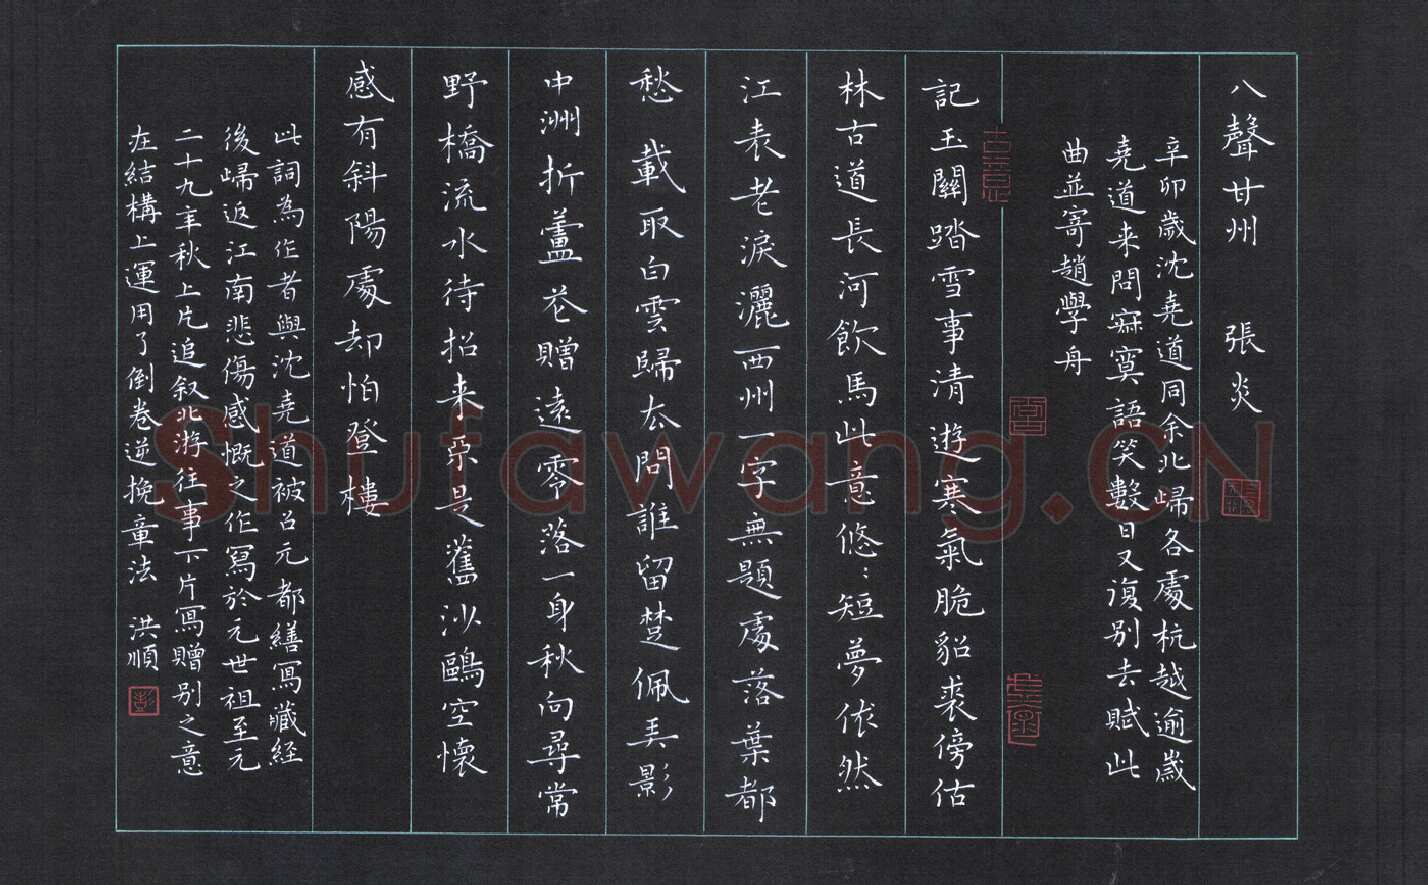 八聲甘州 張炎
辛卯歲沈堯道同余北歸各處杭越逾歲
堯道来問寂寞語笑數日又復別去賦此
曲並寄趙學舟
記玉關踏雪事清遊寒氣脆貂裘傍估
林古道長河飲馬此意悠：短夢依然
江表老淚灑西州一字無題處落葉都
愁 載取白雲歸去問誰留楚佩弄影
中洲折蘆花贈遠零落一身秋向尋常
野橋流水待招来不是舊沙鷗空懷
感有斜陽處却怕登樓
此詞為作者與沈堯道被召元都繕寫藏經
後歸返江南悲傷感慨之作寫於元世祖至元
二十九年秋上片追叙北游往事下片寫贈別之意
在結構上運用了倒卷逆挽章法 洪順
Shufawang.CN